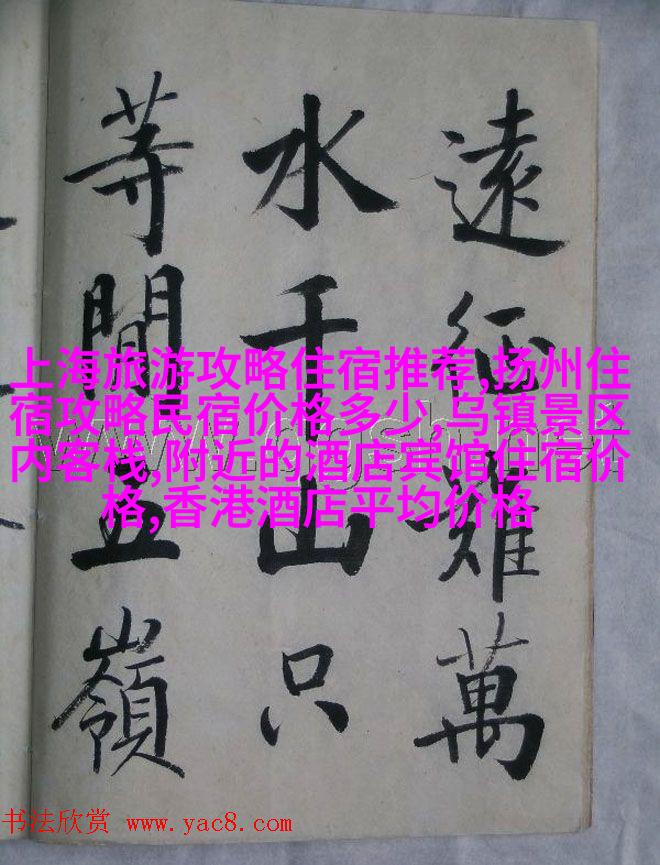 遠征難萬
水千山只
等閒五嶺
上海旅游攻略住宿推荐,扬州住
宿攻略民宿价格多少,乌镇景区
内客栈,附近的酒店宾馆住宿价
格,香港酒店平均价格
书法欣赏 www.yac8.com